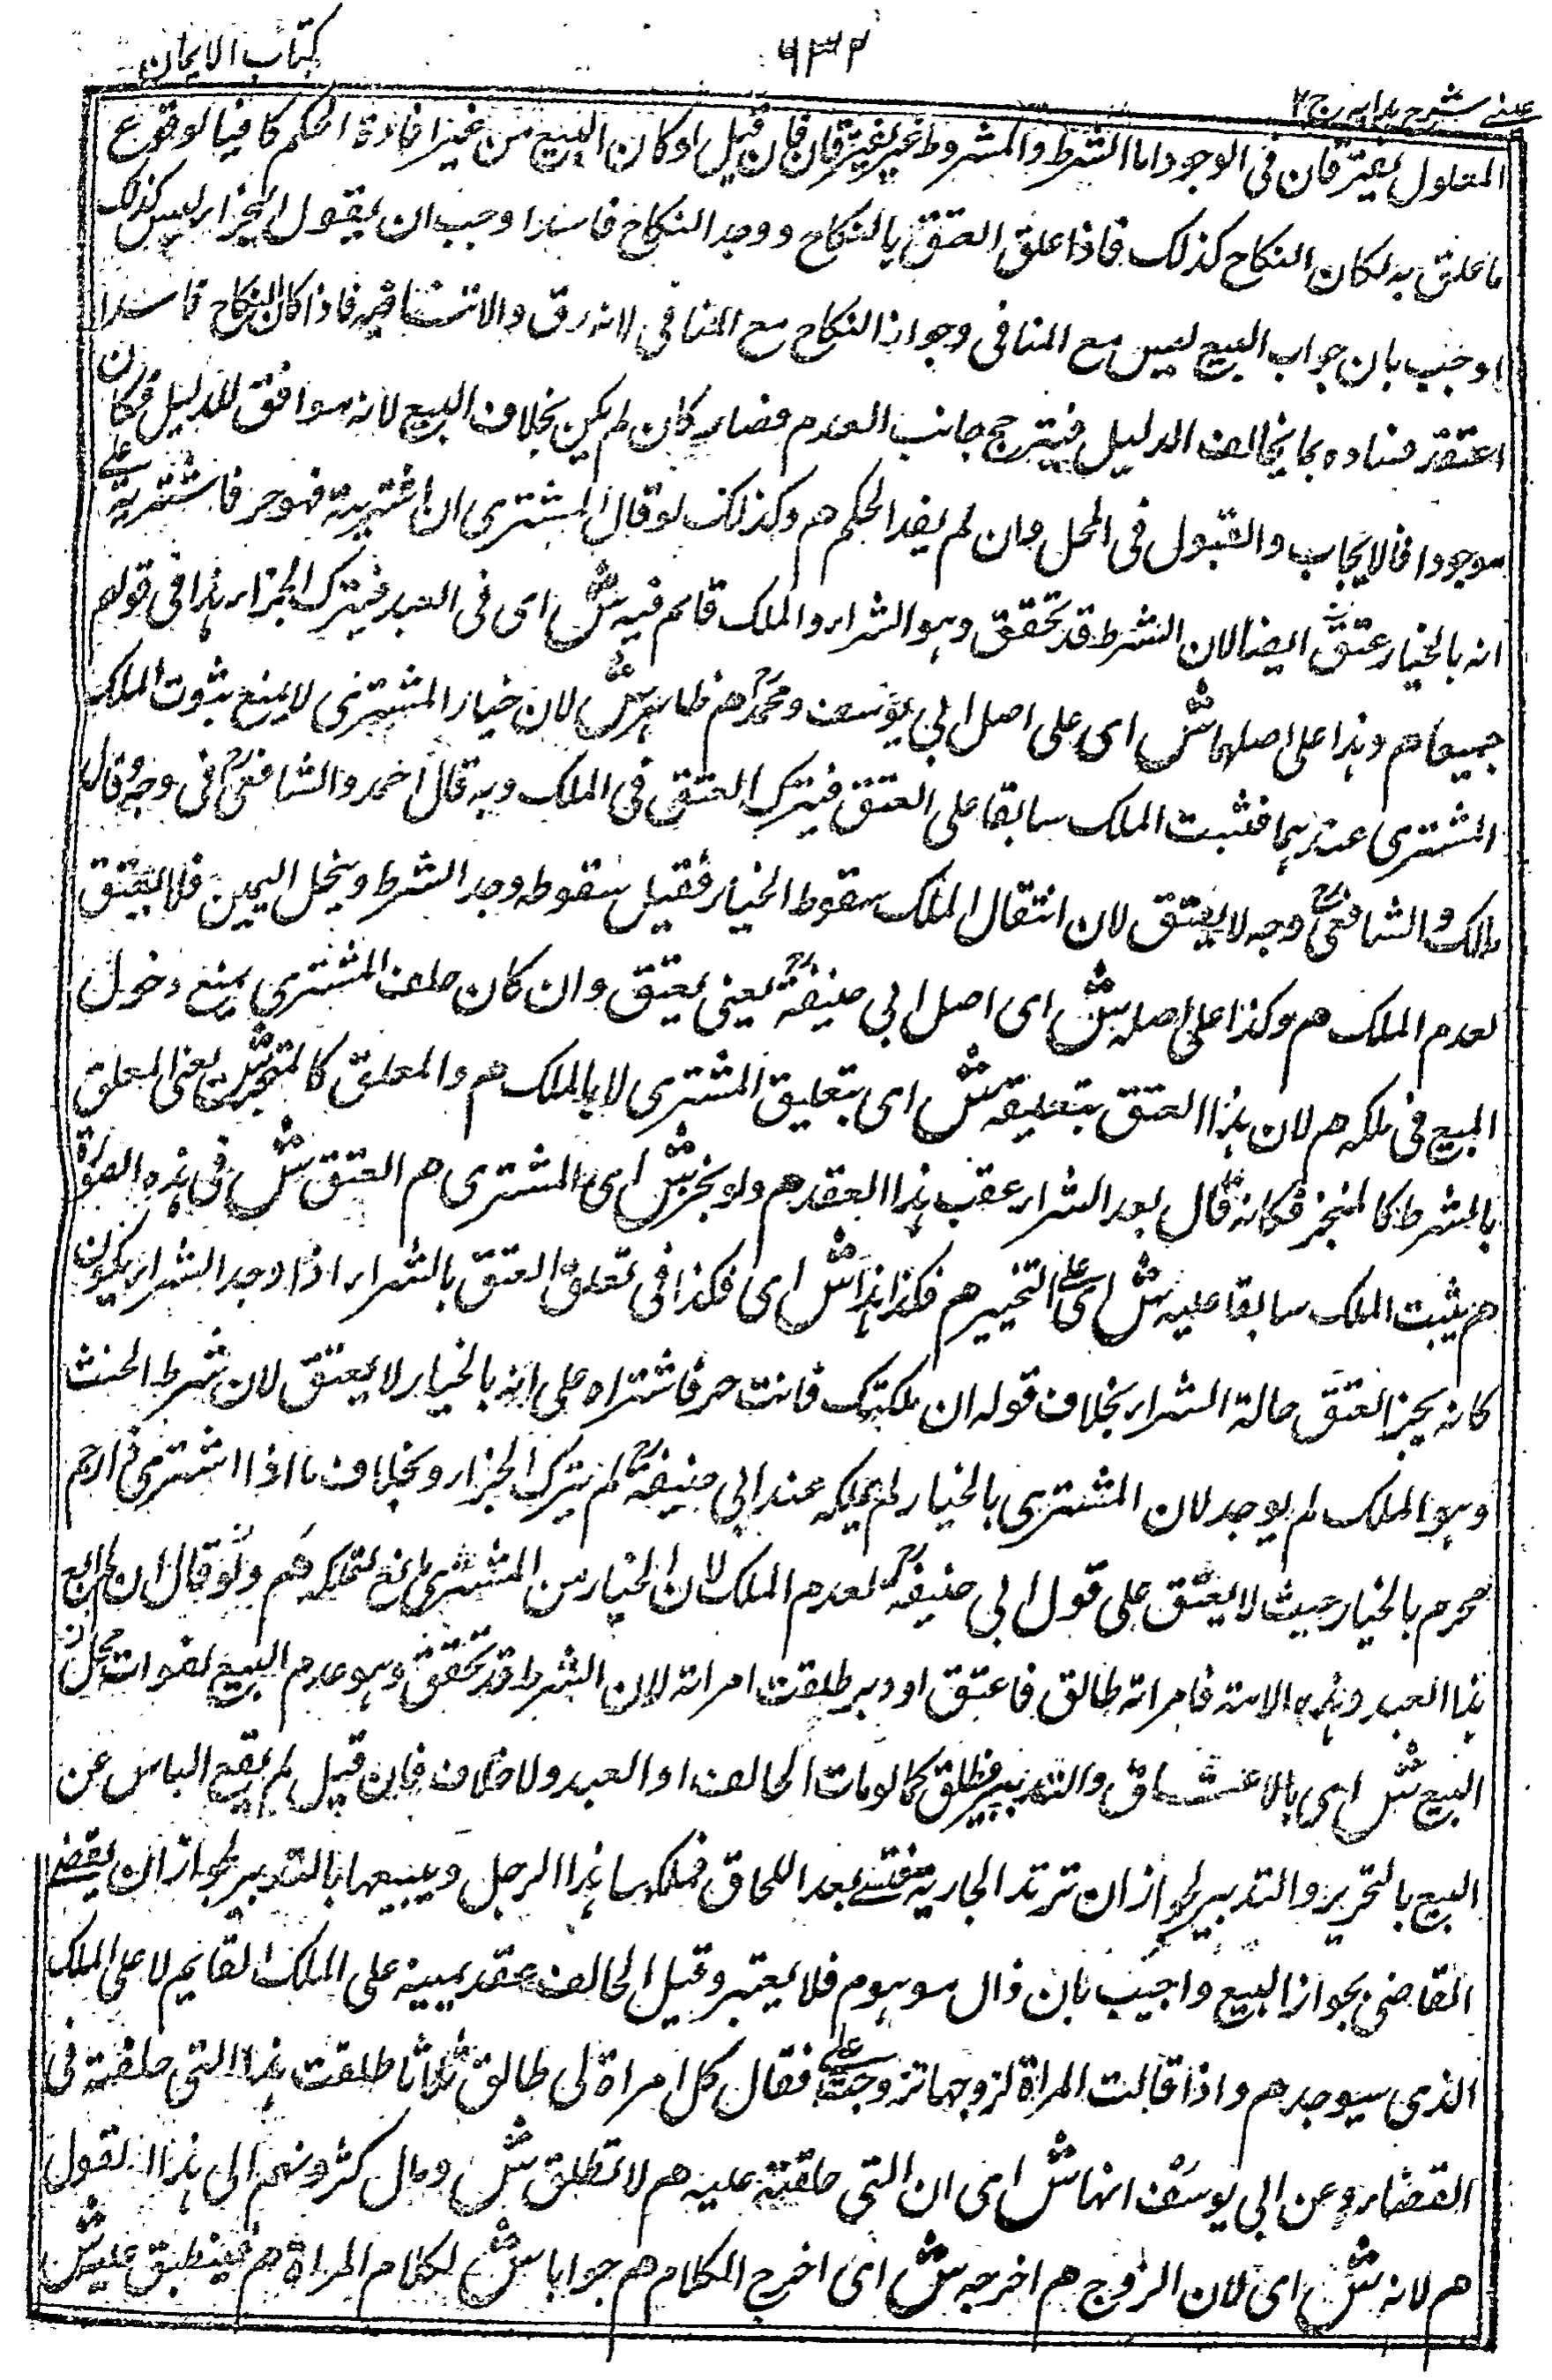 كتاب الايمان
٦٣٢
عينى شرح هدايه ج٢
المعلول يفترقان فى الوجود اما الشرط والمشروط غير يفترقان فان قيل لو كان البيع من غير افادة الحكم كافيا لوقوع
ما علق به لكان النكاح كذلك فاذا علق العتق بالنكاح ووجد النكاح فاسدا وجب ان يقول الجزاء ليس كذلك
اوجيب بان جواب البيع ليس مع المنافى وجواز النكاح مع المنافى لانه رق والا فاذا كان النكاح فاسدا
اعتقد فساده بما يخالف الدليل فيترجح جانب العدم فصار كان لم يكن بخلاف البيع لانه موافق للدليل فكان
موجودا فالايجاب والقبول فى المحل وان لم يفد الحكم هم وكذلك لو قال المشترى ان اشتريته فهو حر فاشتريه على
انه بالخيار عتق ايضا لان الشرط قد تحقق وهو الشراء والملك قائم فيه ش اى فى العبد فيترك الجزاء هذا فى قولهم
جميعا هم وهذا على اصلهما ش اى على اصل ابى يوسف ومحمد هم ظاهر ش لان خيار المشترى لا يمنع ثبوت الملك
المشترى عندهما فثبت الملك سابقا على العتق فيترك العتق فى الملك وبه قال احمد والشافعى فى وجه وقال
مالك والشافعى وجه لا يعتق لان انتقال الملك سقوط الخيار فقيل سقوطه وجد الشرط وينحل اليمين فلا يعتق
لعدم الملك هم وكذا على اصله ش اى اصل ابى حنيفة يعنى يعتق وان كان حلف المشترى يمنع دخول
المبيع فى ملكه هم لان هذا العتق بتعليقه ش اى بتعليق المشترى لا بالملك هم والمعلق كالمنجز ش يعنى المعلق
بالشرط كالمنجز فكانه قال بعد الشراء عقب هذا العقد هم ولو نجز ش اى المشترى هم العتق ش فى هذه الصورة
هم يثبت الملك سابقا عليه ش اى على التخيير هم فكذا هذا ش اى فكذا فى تعلق العتق بالشراء اذا وجد الشراء يكون
كانه نجز العتق حالة الشراء بخلاف قوله ان ملكتك فانت حر فاشتراه على انه بالخيار لا يعتق لان شرط الحنث
وهو الملك لم يوجد لان المشترى بالخيار لم يملكه عند ابى حنيفة لم يترك الجزاء وبخلاف ما اذا اشترى ذا رحم
محرم بالخيار حيث لا يعتق على قول ابى حنيفة لعدم الملك لان الخيار من المشترى مانع لتملكه هم ولو قال ان لم ابع
هذا العبد وهذه الامة فامراته طالق فاعتق او دبر طلقت امراته لان الشرط قد تحقق وهو عدم البيع لفوات محل
البيع ش اى بالاعتاق والتدبير فطلق كما لو مات الحالف او العبد ولا خلاف فان قيل لم يقع الياس عن
البيع بالتحرير والتدبير لجواز ان ترتد الجارية فتسبى بعد اللحاق فملكها هذا الرجل ويبيعها بالتدبير لجواز ان يقضى
القاضى بجواز البيع واجيب بان ذال موهوم فلا يعتبر وقيل الحالف عقد يمينه على الملك القائم لا على الملك
الذى سيوجد هم واذا قالت المراة لزوجها تزوجت على فقال كل امراة لى طالق ثلاثا طلقت هذا التى حلفته فى
القضاء وعن ابى يوسف انها ش اى ان التى حلفته عليه هم لا تطلق ش ومال كثر ونهم الى هذا القول
هم لانه ش اى لان الزوج هم اخرجه ش اى اخرج الكلام هم جوابا ش لكلام المراة هم فينطبق عليه ش